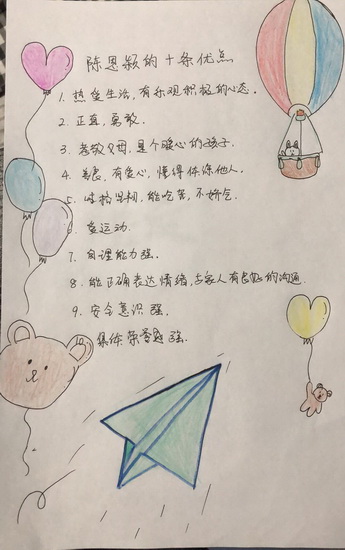 陈恩颖的十条优点
1. 热爱生活,有乐观积极的心态。
2. 正直,勇敢.
3. 孝敬父母,是个暖心的孩子
4. 善良,有爱心,懂得体谅他人.
5. 吃苦,不娇气.
6. 爱运动.
7. 自理能力强.
8. 能正确表达情绪,与家人有良好的沟通.
9. 安全意识强.
集体荣誉感强.